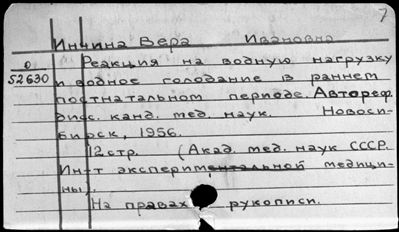 7
Инчина Вера Ивановна
0
52630
Реакция на водную нагрузку
и водное голодание в раннем
постнатальном периоде. Автореф.
дисс. канд. мед. наук. Новоси-
бирск, 1956.
12стр. (Акад. мед. наук СССР.
Ин-т экспериментальной медици-
ны).
На правах рукописи.